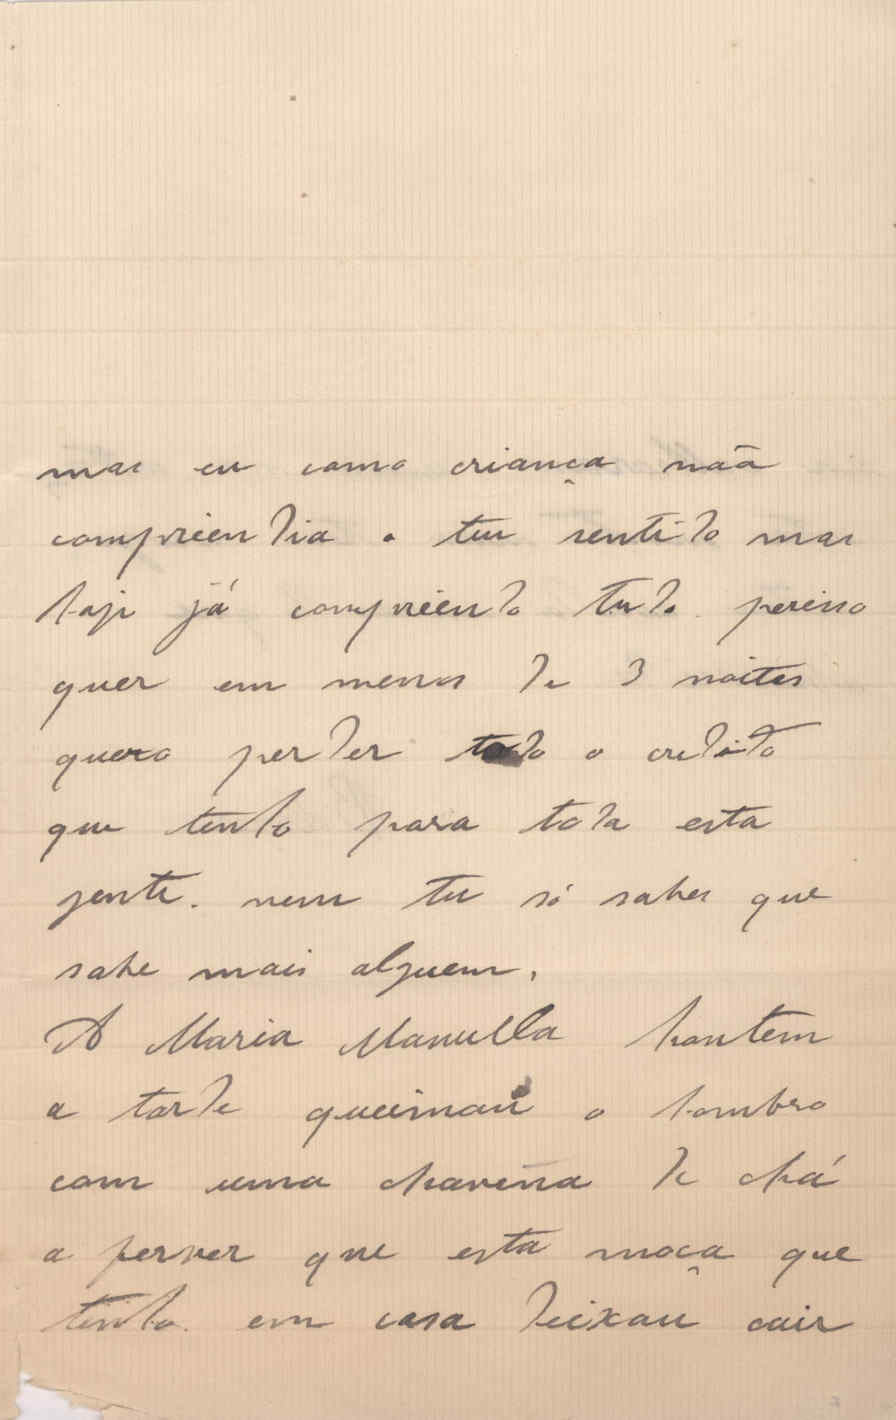 mas eu como criança não
compriendia o teu sentido mas
hoje já compriendo tudo. porisso
quer em menos de 3 noites
quero perder todo o credito
que tenho para toda esta
gente. nem tu só sabes que
sabe mais alguem.
A Maria Manuella hontem
a tarde queimou o hombro
com uma chavena de chá
a ferver que esta moça que
tenho em casa deixou cair